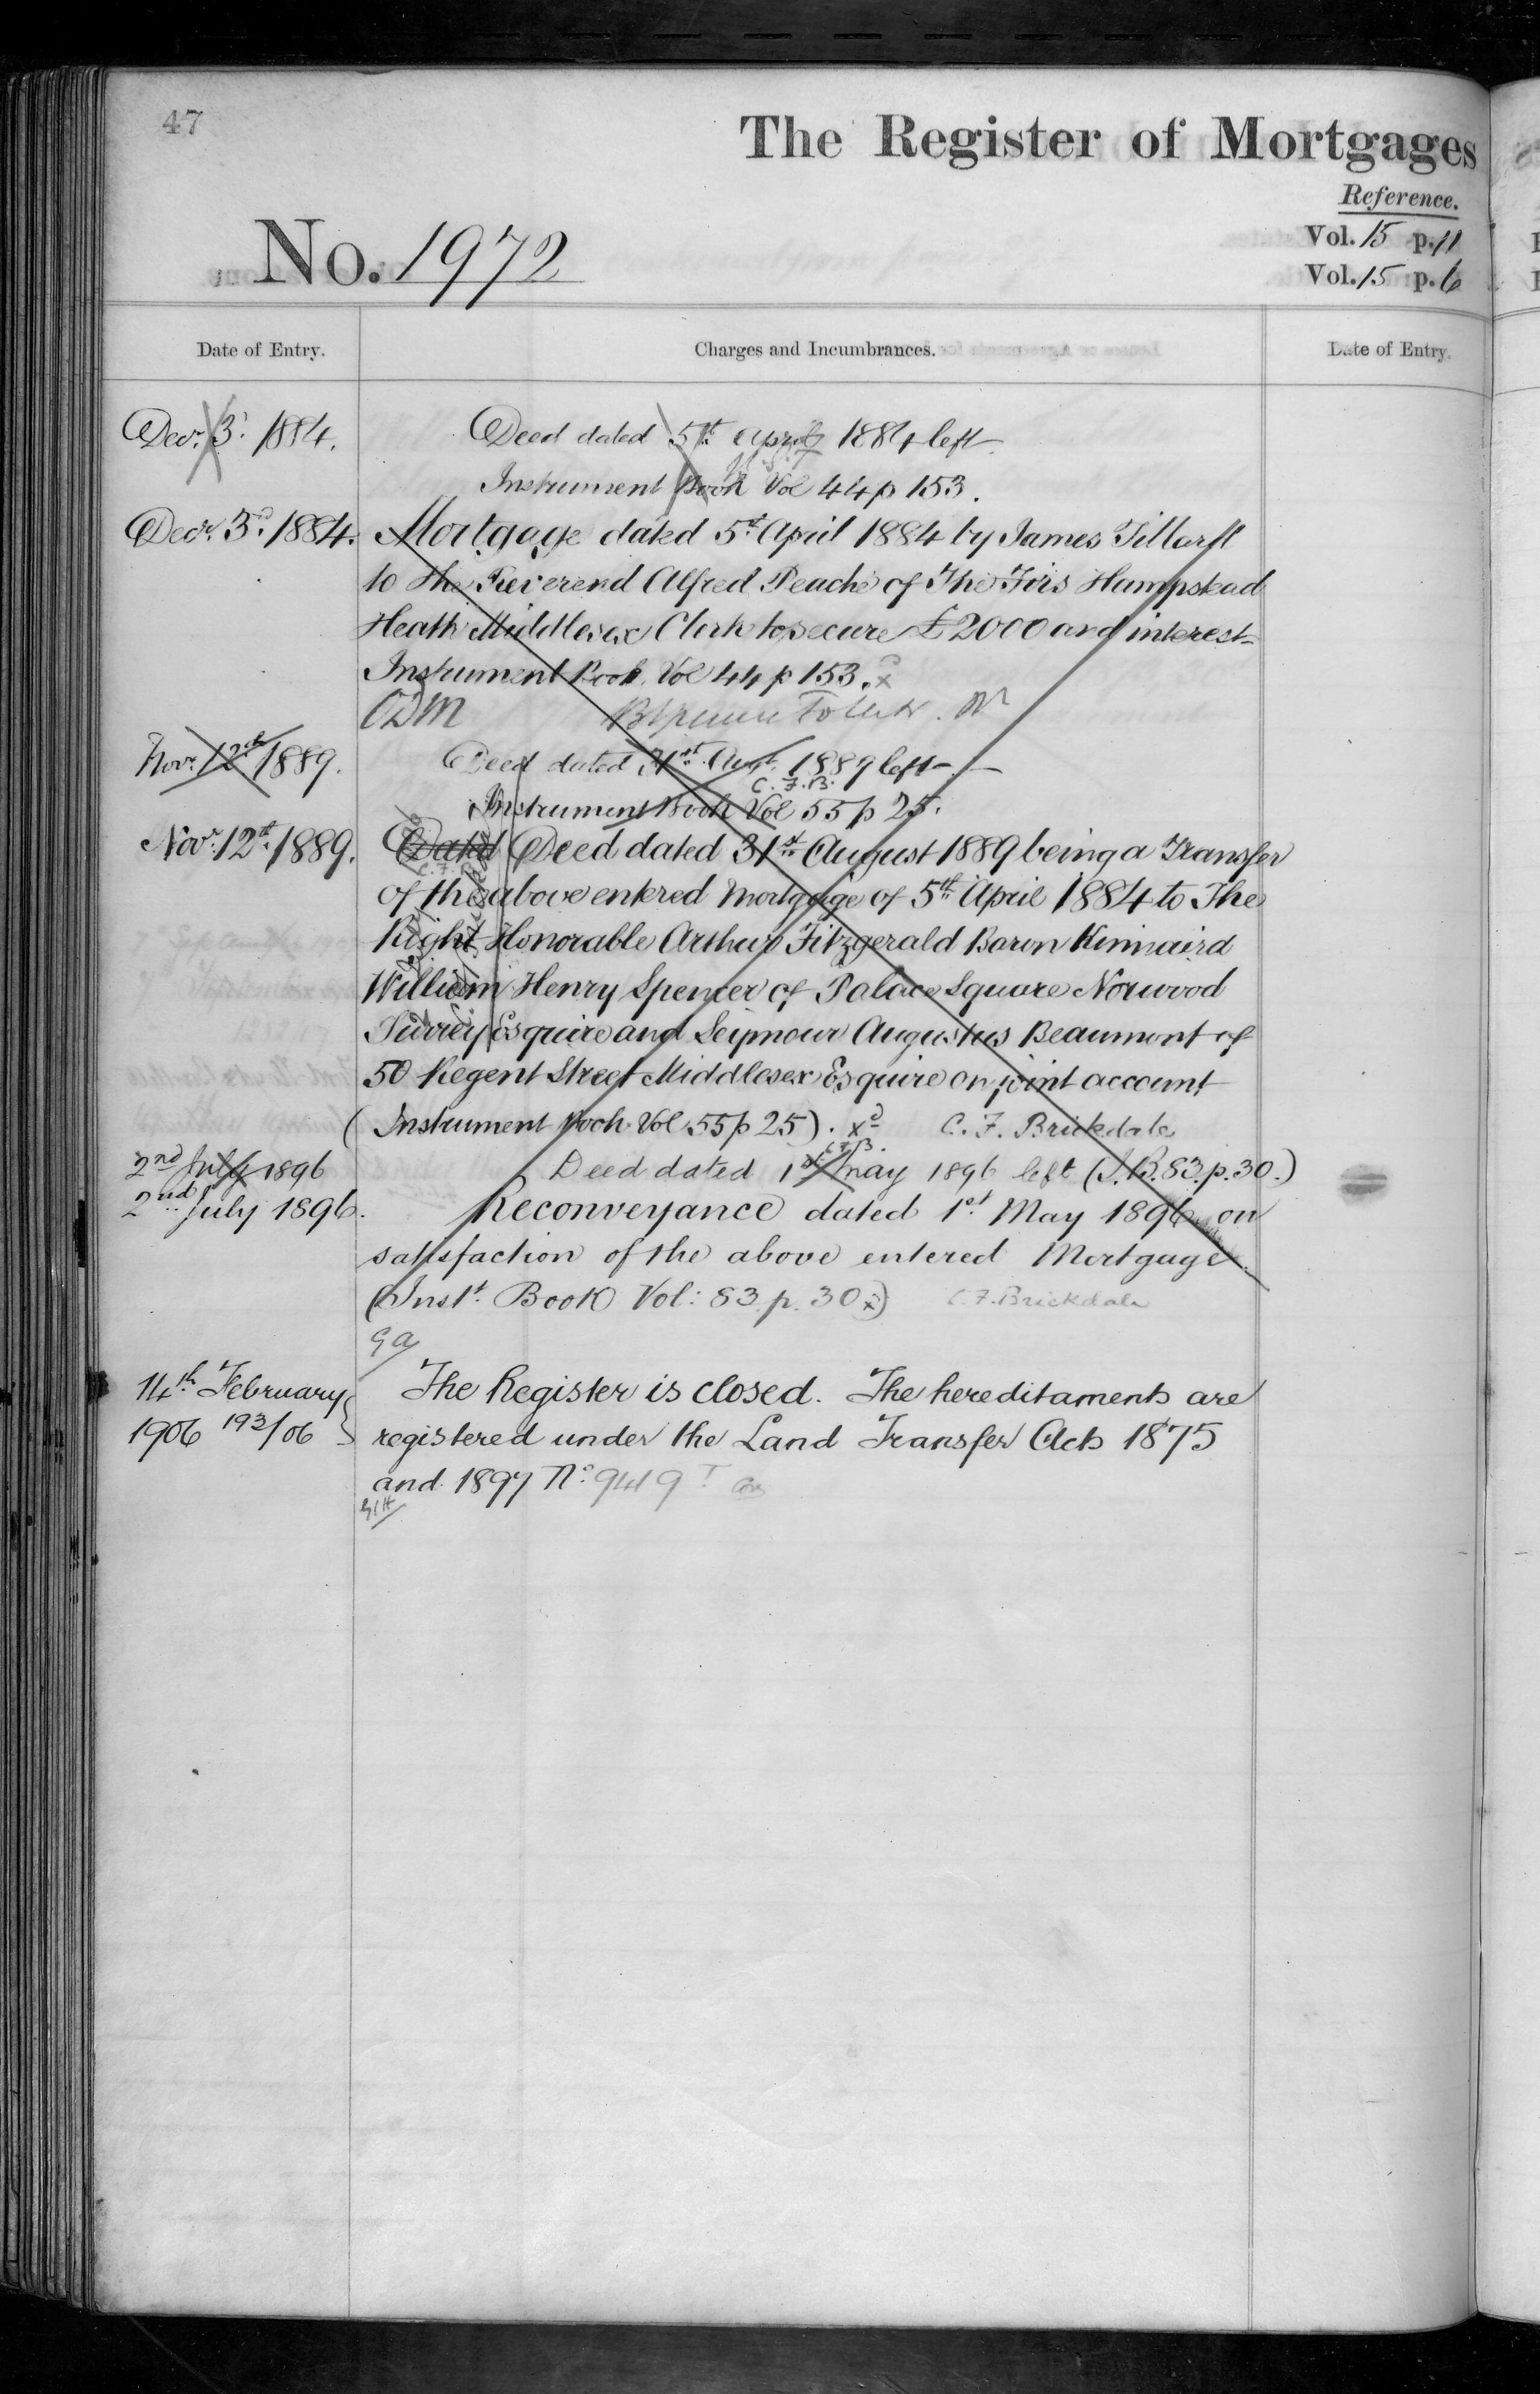 47
The Register of Mortgages
Reference.
Vol. 15 p. 11
No. 1972
Vol. 15 p. 6
Date of Entry. Charges and Incumbrances. Date of Entry.
Decr. 3d. 1884. Deed dated 5th April 1884 left
Instrument Book Vol 44 p 153.
Decr. 3rd. 1884. Mortgage dated 5th April 1884 by James
to the Reverend Alfred Peache of The Firs Hampstead
Heath Middlesex Clerk to secure £2000 and interest
Instrument Book Vol 44 p 153. x
Novr. 12th 1889. Deed dated 31st Augt. 1889 left
C. F. B.
Instrument Book Vol 55 p 25.
Novr. 12th. 1889. Dated Deed dated 31st August 1889 being a Transfer
of the above entered Mortgage of 5th April 1884 to The
Right Honorable Arthur Fitzgerald Baron Kinnaird
William Henry Spencer of Palace Square Norwood
Surrey Esquire and Seymour Augustus Beaumont of
50 Regent Street Middlesex Esquire on joint account
(Instrument Book Vol 55 p 25). xd C. F. Brickdale
C F B.
2nd July 1896 Deed dated 1st May 1896 left (I.B. 83. p. 30.)
2nd July 1896. Reconveyance dated 1st May 1896 on
satisfaction of the above entered Mortgage.
(Inst. Book Vol: 83. p. 30 x) C. F. Brickdale
G a
14th February The Register is closed. The hereditaments are
1906 193/06 registered under the Land Transfer Acts 1875
and 1897 No. 9419